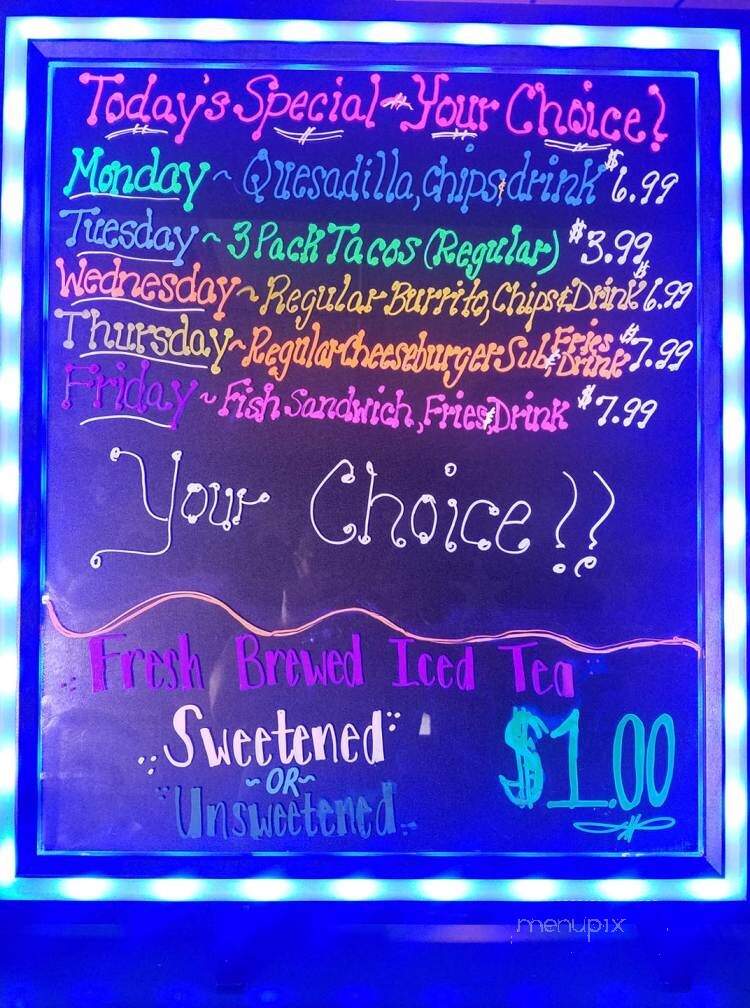 Today's Special ~ Your Choice!
Monday ~ Quesadilla, chips & drink $6.99
Tuesday ~ 3 Pack Tacos (Regular) $3.99
Wednesday ~ Regular Burrito, Chips & Drink $6.99
Thursday ~ Regular Cheeseburger Sub, Fries & Drink $7.99
Friday ~ Fish Sandwich, Fries & Drink $7.99
Your Choice!!
Fresh Brewed Iced Tea
Sweetened
~OR~
Unsweetened
$1.00
menupix